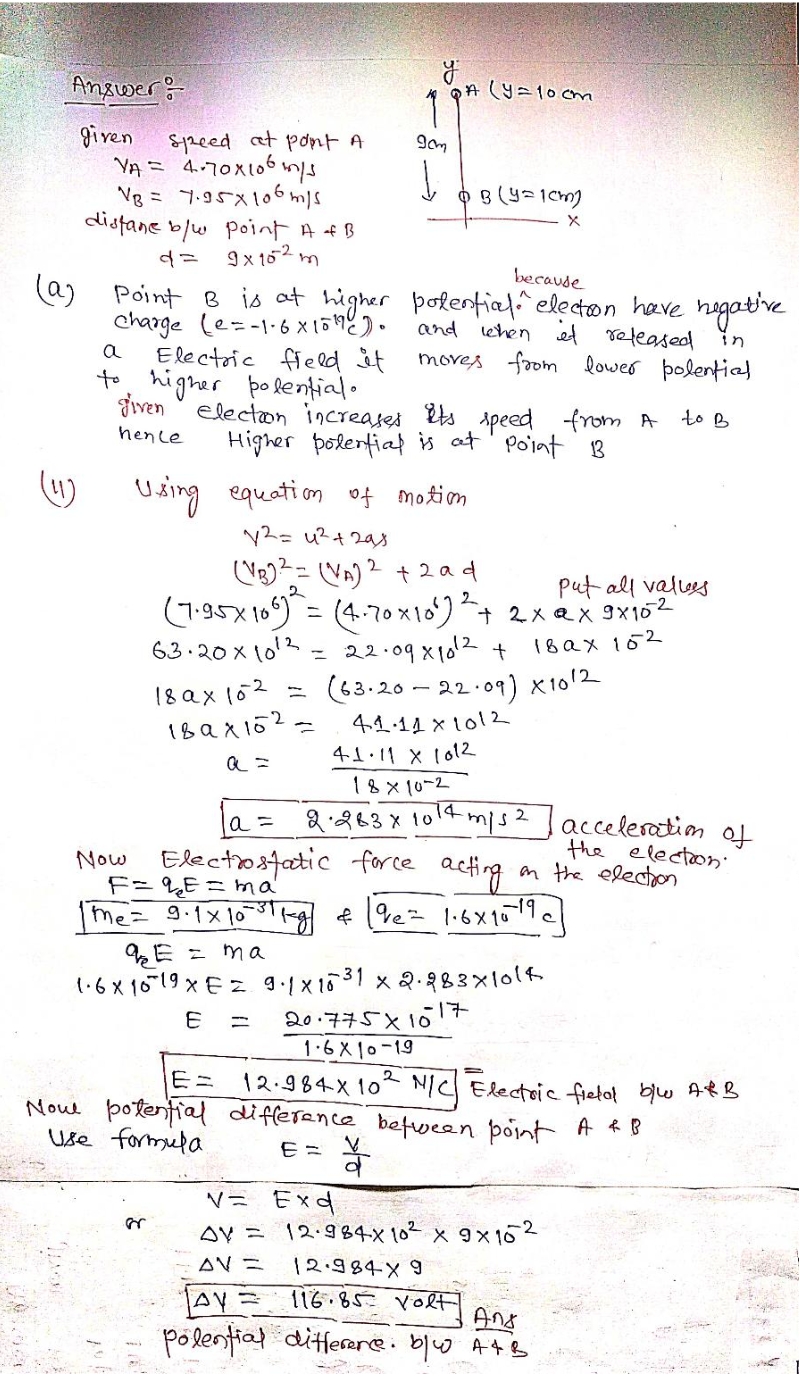 Answer :-
y
A (y=10 cm
given speed at point A
9cm
VA = 4.70x10⁶ m/s
VB = 7.95x10⁶ m/s
B (y=1cm)
x
distane b/w point A & B
d = 9x10⁻² m
(a) Point B is at higher potential. because electron have negative
charge (e=-1.6x10⁻¹⁹c). and when it released in
a Electric field it moves from lower potential
to higher potential.
given electron increases its speed from A to B
hence Higher potential is at Point B
(11) Using equation of motion
V²= u²+2as
(VB)² = (VA)² + 2ad
put all values
(7.95x10⁶)² = (4.70x10⁶)² + 2xax9x10⁻²
63.20x10¹² = 22.09x10¹² + 18ax10⁻²
18ax10⁻² = (63.20-22.09)x10¹²
18ax10⁻² = 41.11x10¹²
a = 41.11 x 10¹²
18x10⁻²
a = 2.283x10¹⁴ m/s² acceleration of
the electron.
Now Electrostatic force acting on the electron
F=qeE=ma
me= 9.1x10⁻³¹kg & qe= 1.6x10⁻¹⁹c
qeE = ma
1.6x10⁻¹⁹xE = 9.1x10⁻³¹ x 2.283x10¹⁴
E = 20.775x10⁻¹⁷
1.6x10⁻¹⁹
E = 12.984x10² N/C = Electric field b/w A&B
Now potential difference between point A & B
Use formula E = V
d
V = Exd
or ΔV = 12.984x10² x 9x10⁻²
ΔV = 12.984x9
ΔV = 116.85 volt Ans
potential difference. b/w A&B